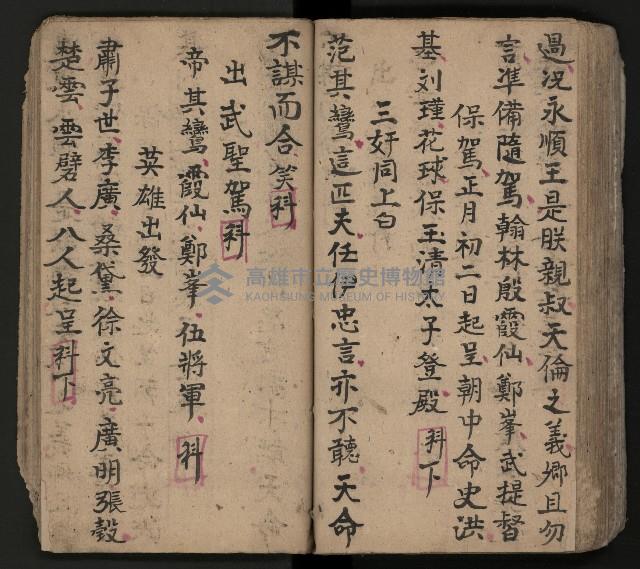 過况永順王是朕親叔天倫之義卿且勿
言准備隨駕翰林殷霞仙鄭峯武提督
保駕正月初二日起呈朝中命史洪
基刘瑾花球保玉清太子登殿科下
三奸同上白
范其鸞這匹夫任這忠言亦不聽天命
不謀而合笑科
出武聖駕科
帝其鸞霞仙鄭峯伍將軍科
英雄出發
肅子世李廣桑黛徐文亮廣明張毅
楚雲雲璧人八人起呈科下
高雄市立歷史博物館
KAOHSIUNG MUSEUM OF HISTORY